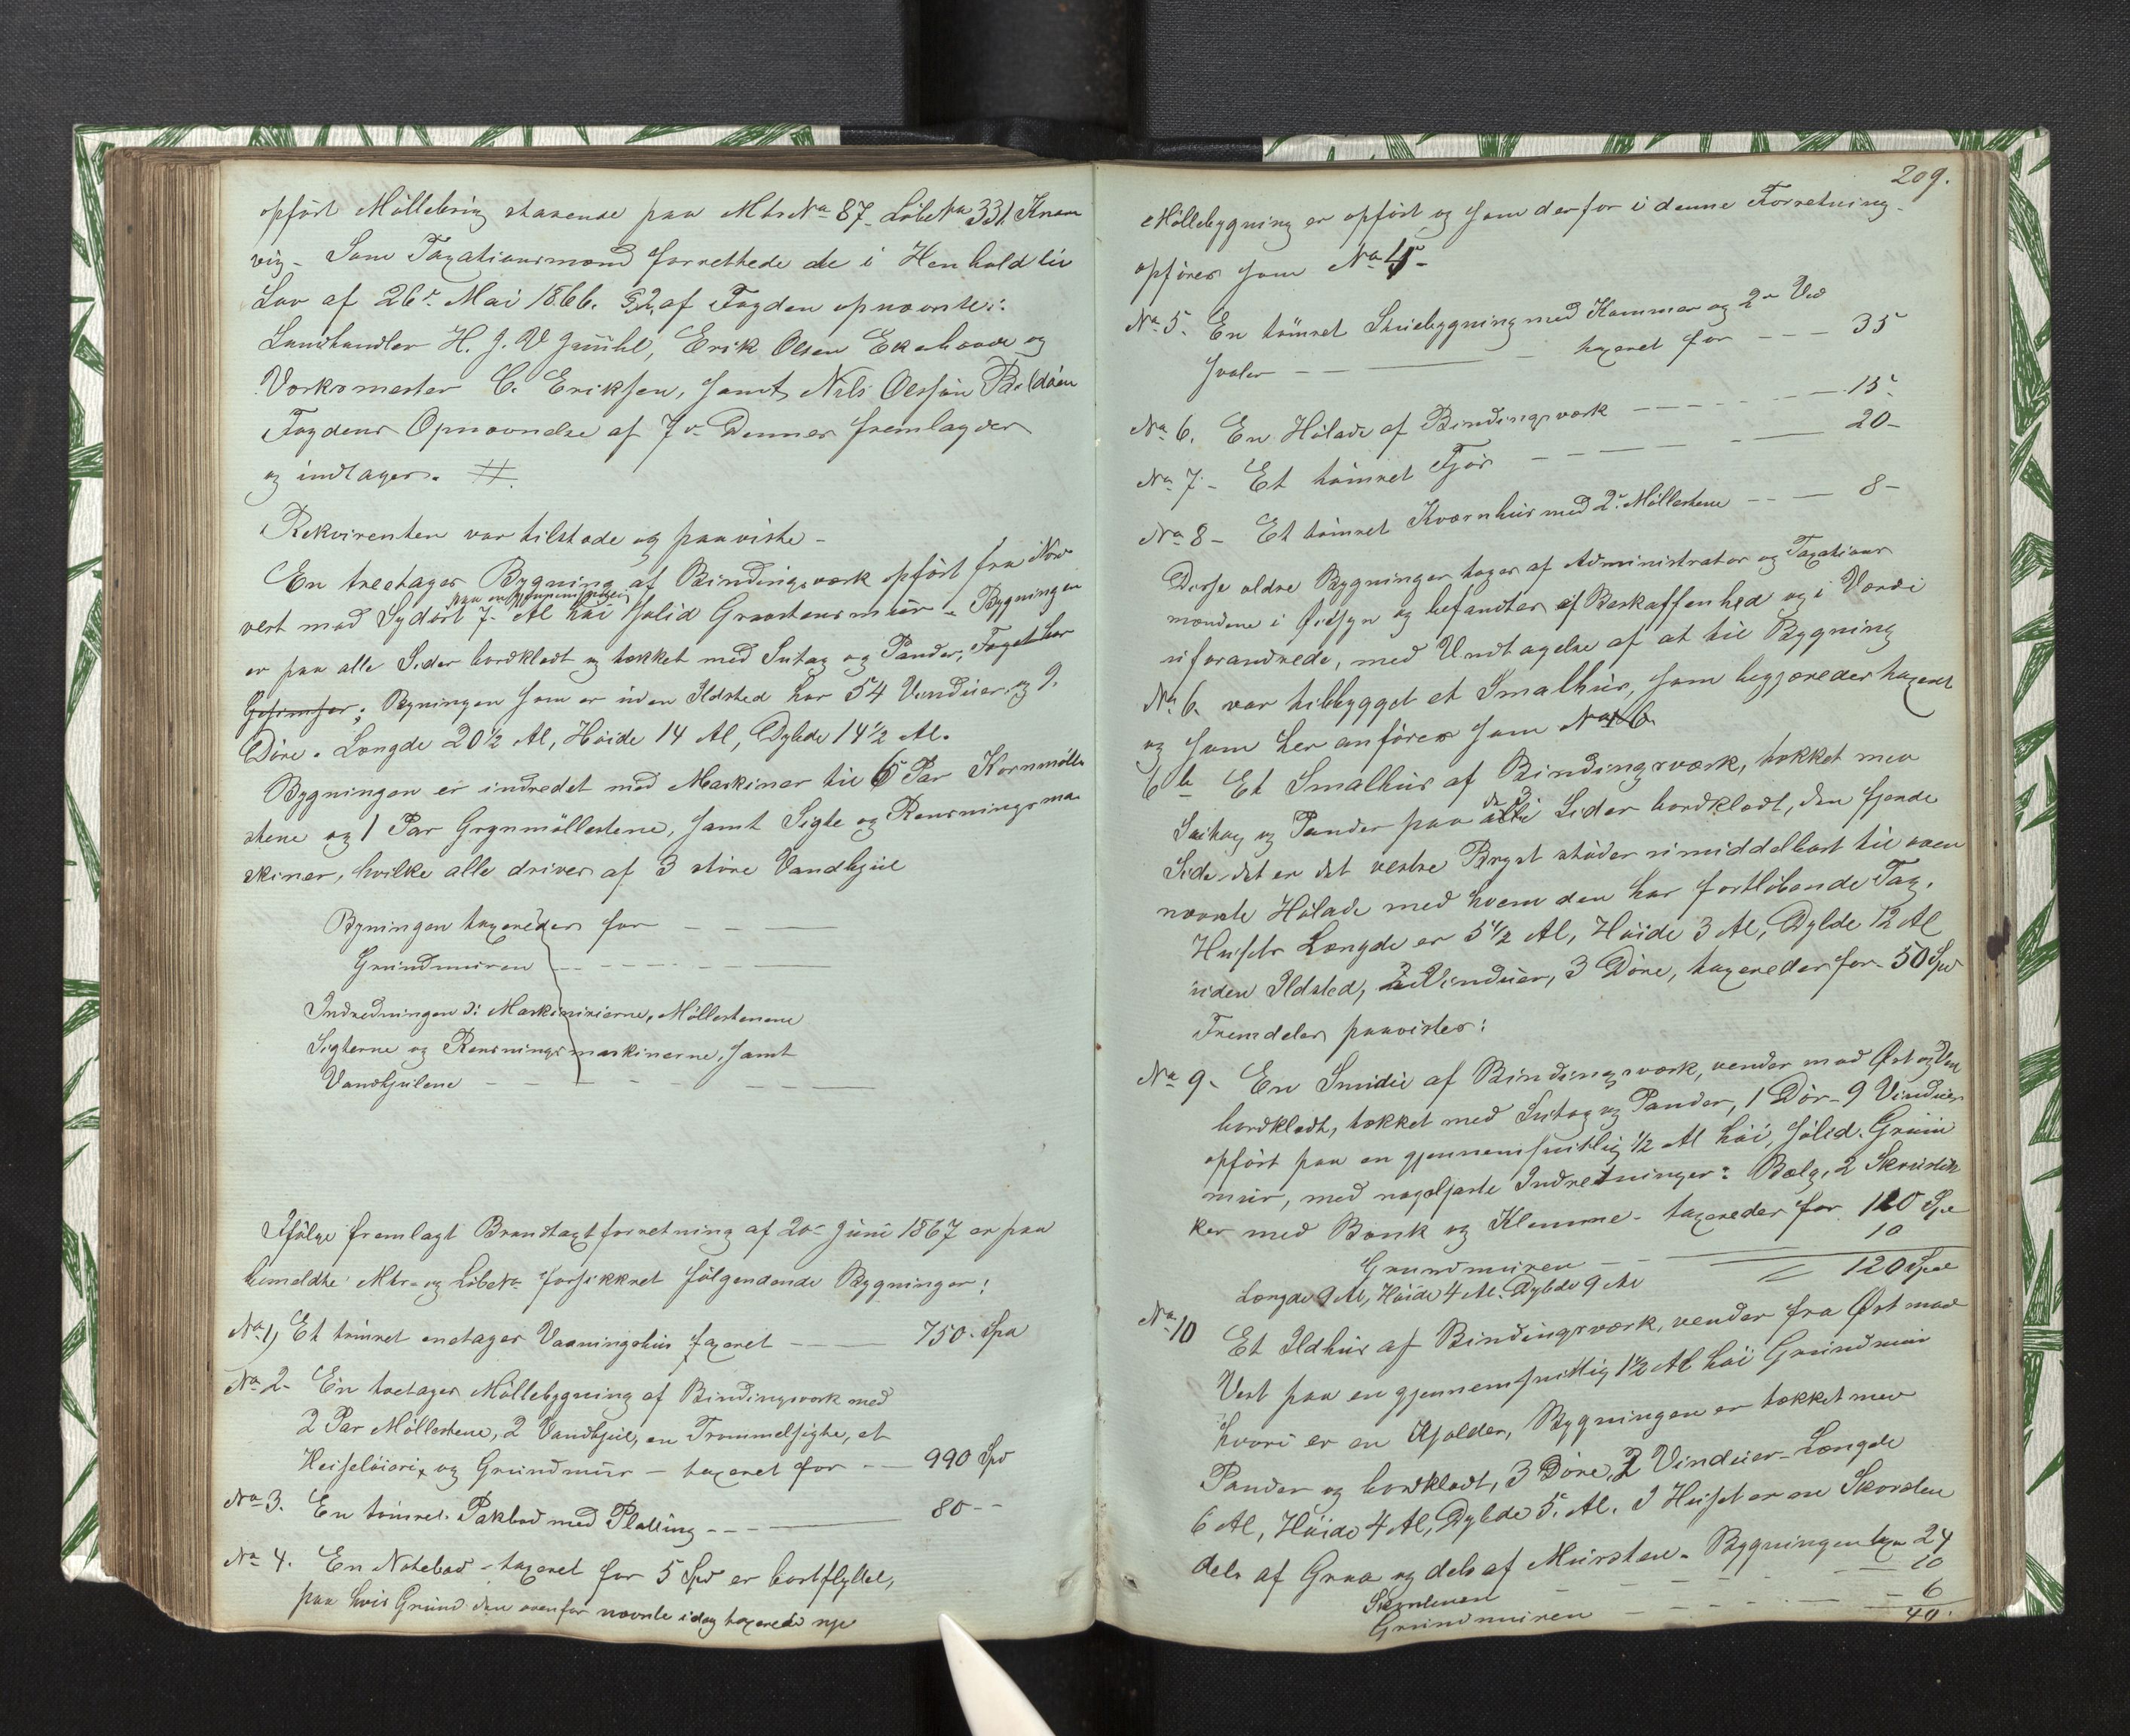 opført Møllebrug staaende paa Mtr No 87 Løbe No 331 Knar
vig - Som Taxationsmænd forrettede de i Henhold til
Lov af 26de Mai 1866 § 2 af Fogden opnævnte:
Landhandler H. J. Juuhl, Erik Olsen Ekehovde og
Værksmester C. Eriksen, samt Nils Olssøn Boldøen
Fogdens Opnævnelse af 7de Dennes fremlagdes
og indtages. #
Rekvirenten var tilstede og paaviste -
En treetages Bygning af Bindingsværk opført fra Nord
paa en gjennemsnitlig
vest mod Sydøst 7 Al høi solid Graastensmuur - Bygningen
er paa alle Sider bordklædt og tækket med Sutag og Pander, Taget har
Gesimser; Bygningen som er uden Ildsted har 54 Vinduer og 9
Døre. Længde 20 1/2 Al, Høide 14 Al, Dybde 14 1/2 Al.
Bygningen er indredet med Maskiner til 6 Par Kornmølle
stene og 1 Par Grynmøllestene, samt Sigte og Rensningsma
skiner, hvilke alle drives af 3 store Vandhjul
Bygningen taxeredes for - - -
Grundmuren - - -
Indredningen d: Maskinerierne, Møllestenene
Sigterne og Rensningsmaskinerne, samt
Vandhjulene - - -
Ifølge fremlagt Brandtaxtforretning af 20de Juni 1867 er paa
bemeldte Mtr- og Løbe No forsikkret følgendende Bygninger:
No 1, Et tømret enetages Vaaningshus taxeret - - 750 Spd
No 2 - En toetages Møllebygning af Bindingsværk med
2 Par Møllestene, 2 Vandhjul, en Trommelsigte, et
Heiseloiori, og Grundmur - taxeret for - - 990 Spd
No 3. En tømret Pakbod med Platting - - - 80 - -
No 4. En Notebod - taxeret for 5 Spd er bortflyttet,
paa hvis Grund den ovenfor nævnte idag taxerede nye
209.
Møllebygning er opført og som derfor i denne Forretning
opføres som No 4 -
No 5. En tømret Stuebygning med Kammer og 2de Ved
svaler - - - taxeret for - - 35
No 6. En Hølade af Bindingsværk - - - 15
No 7 - Et tømret Fjøs - - - 20 -
No 8 - Et tømret Kværnhus med 2de Møllestene - - 8 -
Disse ældre Bygninger toges af Administrator og Taxations
mændene i Øiesyn og befandtes af Beskaffenhed og i Værdi
uforandrede, med Undtagelse af at til Bygning
No 6. var tilbygget et Smalhus, som begjæredes taxeret
og som her anføres som No 6
6 b Et Smalhus af Bindingsværk, tækket med
de 3
Sutag og Pander paa alle Sider bordklædt, den fjerde
Side, det er det vestre Bryst støder umiddelbart til oven
nævnte Hølade med hvem den har fortløbende Tag.
Husets Længde er 5 1/2 Al, Høide 3 Al, Dybde 12 Al
uden Ildsted, 2 Vinduer, 3 Døre, taxeredes for 50 Spd
Fremdeles paavistes:
No 9 - En Smidie af Bindingsværk, vender mod Øst og Vest
bordklædt, tækket med Sutag og Pander, 1 Dør - 9 Vinduer
opført paa en gjennemsnitlig 1/2 Al høi, solid Grund
mur, med nagelfaste Indretninger: Bælg, 2 Skruestik
ker med Bænk og Klemme - taxeredes for 110 Spd
Grundmuren - - - 10
= 120 Spd
Længde 9 Al, Høide 4 Al. Dybde 9 Al
No 10 Et Ildhus af Bindingsværk, vender fra Øst mod
Vest paa en gjennemsnitlig 1 1/2 Al høi Grundmur
hvori er en Kjelder, Bygningen er tækket med
Pander og bordklædt, 3 Døre, 2 Vinduer - Længde
6 Al, Høide 4 Al, Dybde 5 Al. I Huset er en Skorsten
dels af Graa og dels af Mursten - Bygningen tax 24
Skorstenen - - - 10
Grundmuren - - - 6
40